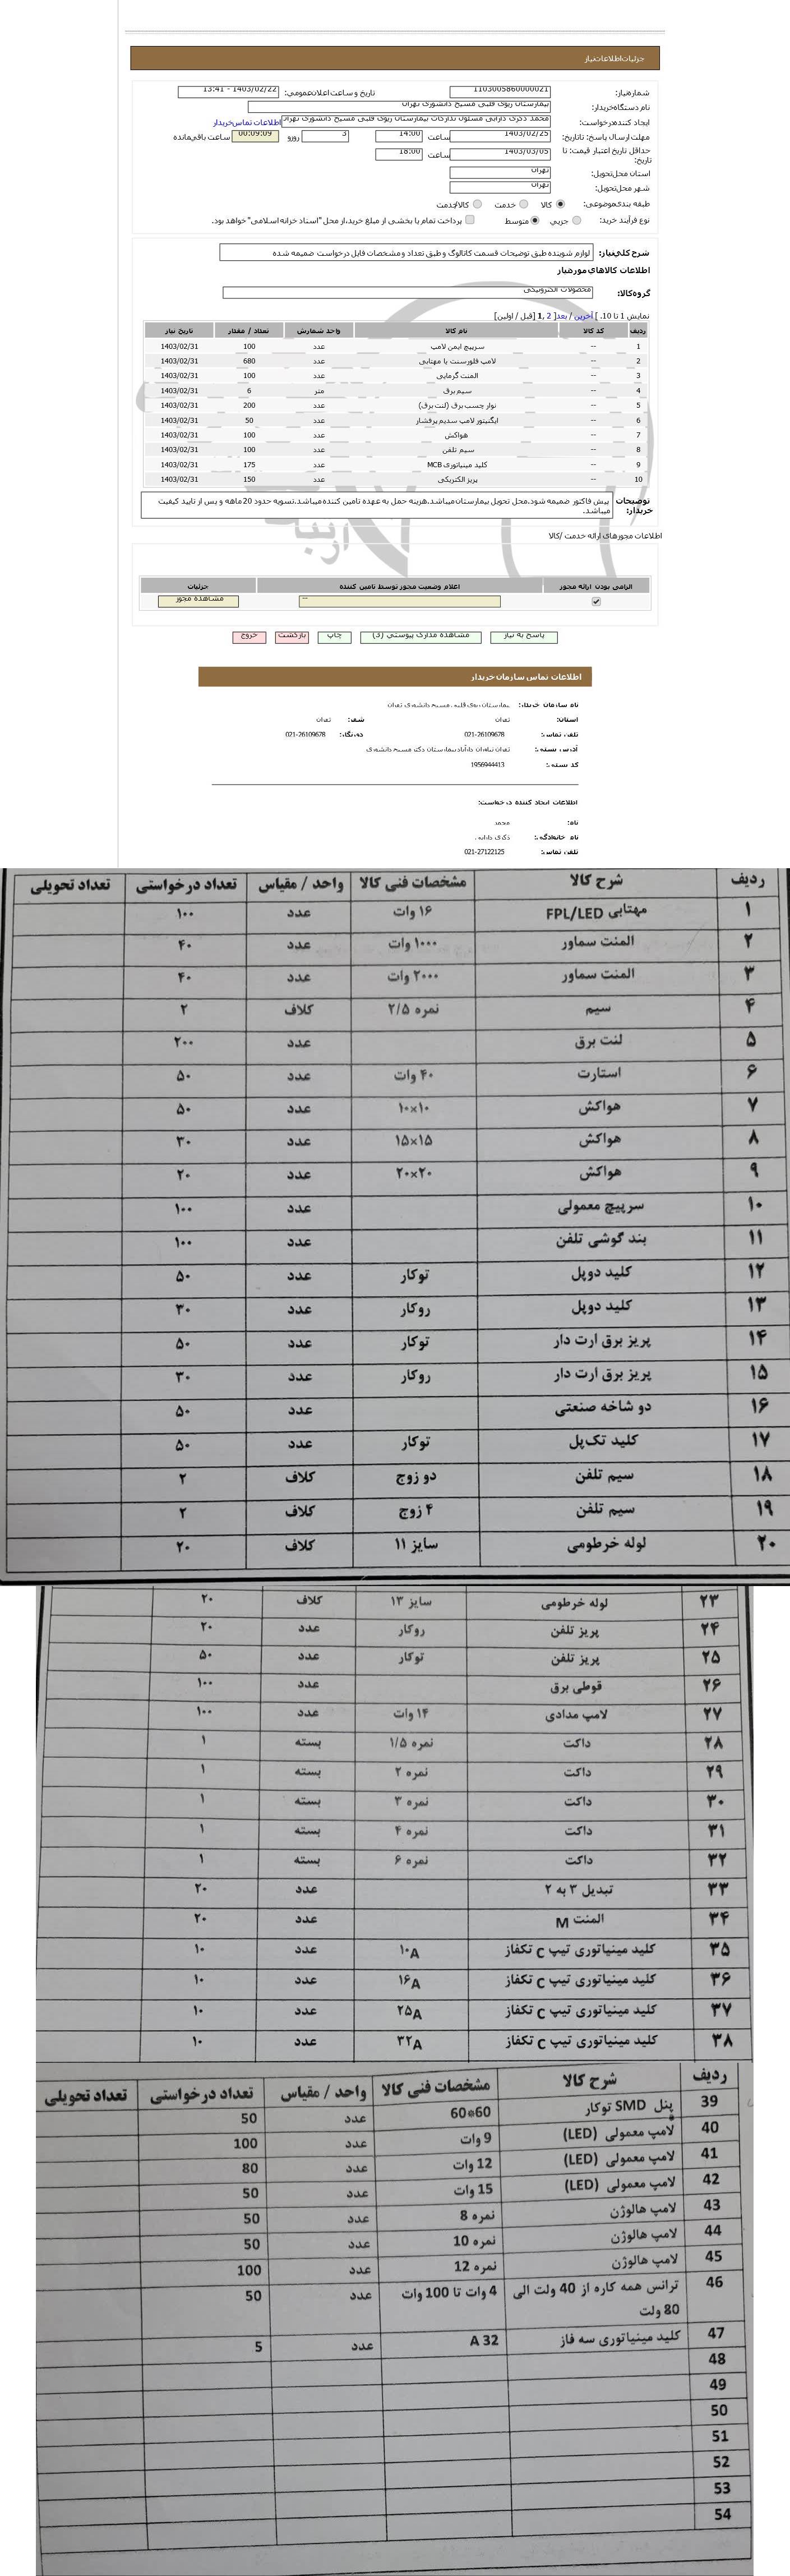 جزئیات اطلاعات نیاز
شماره نیاز: 1103005860000021 تاریخ و ساعت اعلان عمومی: 1403/02/22 - 13:41
نام دستگاه خریدار: بیمارستان ریوی قلبی مسیح دانشوری تهران
ایجاد کننده درخواست: محمد ذکری دارابی مسئول تدارکات بیمارستان ریوی قلبی مسیح دانشوری تهران اطلاعات تماس خریدار
مهلت ارسال پاسخ: تا تاریخ: 1403/02/25 ساعت 14:00 3 روز و 00:09:09 ساعت باقی مانده
حداقل تاریخ اعتبار قیمت: تا تاریخ: 1403/03/05 ساعت 18:00
استان محل تحویل: تهران
شهر محل تحویل: تهران
طبقه بندی موضوعی: کالا خدمت کالا/خدمت
نوع فرآیند خرید: جزیی متوسط پرداخت تمام یا بخشی از مبلغ خرید،از محل "اسناد خزانه اسلامی" خواهد بود.
شرح کلی نیاز: لوازم شوینده طبق توضیحات قسمت کاتالوگ و طبق تعداد و مشخصات فایل درخواست ضمیمه شده
اطلاعات کالاهای مورد نیاز
گروه کالا: محصولات الکترونیکی
نمایش 1 تا 10. [ آخرین / بعد] 2 ,1 [قبل / اولین]
ردیف کد کالا نام کالا واحد شمارش تعداد / مقدار تاریخ نیاز
1 -- سرپیچ ایمن لامپ عدد 100 1403/02/31
2 -- لامپ فلورسنت یا مهتابی عدد 680 1403/02/31
3 -- المنت گرمایی عدد 100 1403/02/31
4 -- سیم برق متر 6 1403/02/31
5 -- نوار چسب برق (لنت برق) عدد 200 1403/02/31
6 -- ایگنیتور لامپ سدیم پرفشار عدد 50 1403/02/31
7 -- هواکش عدد 100 1403/02/31
8 -- سیم تلفن عدد 100 1403/02/31
9 -- کلید مینیاتوری MCB عدد 175 1403/02/31
10 -- پریز الکتریکی عدد 150 1403/02/31
توضیحات خریدار: پیش فاکتور ضمیمه شود.محل تحویل بیمارستان میباشد.هزینه حمل به عهده تامین کننده میباشد.تسویه حدود 20ماهه و پس از تایید کیفیت
میباشد.
اطلاعات مجوزهای ارائه خدمت /کالا
الزامی بودن ارائه مجوز اعلام وضعیت مجوز توسط تامین کننده جزئیات
-- مشاهده مجوز
پاسخ به نیاز مشاهده مدارک پیوستی (3) چاپ بازگشت خروج
اطلاعات تماس سازمان خریدار
نام سازمان خریدار: بیمارستان ریوی قلبی مسیح دانشوری تهران
استان: تهران شهر: تهران
تلفن تماس: 021-26109678 دورنگار: 021-26109678
آدرس پستی: تهران نیاوران دارآباد بیمارستان دکتر مسیح دانشوری
کد پستی: 1956944413
اطلاعات ایجاد کننده درخواست:
نام: محمد
نام خانوادگی: ذکری دارابی
تلفن تماس: 021-27122125
ردیف شرح کالا مشخصات فنی کالا واحد / مقیاس تعداد درخواستی تعداد تحویلی
۱ مهتابی FPL/LED ۱۶ وات عدد ۱۰۰
۲ المنت سماور ۱۰۰۰ وات عدد ۴۰
۳ المنت سماور ۲۰۰۰ وات عدد ۴۰
۴ سیم نمره ۲/۵ کلاف ۲
۵ لنت برق عدد ۲۰۰
۶ استارت ۴۰ وات عدد ۵۰
۷ هواکش ۱۰×۱۰ عدد ۵۰
۸ هواکش ۱۵×۱۵ عدد ۳۰
۹ هواکش ۲۰×۲۰ عدد ۲۰
۱۰ سرپیچ معمولی عدد ۱۰۰
۱۱ بند گوشی تلفن عدد ۱۰۰
۱۲ کلید دوپل توکار عدد ۵۰
۱۳ کلید دوپل روکار عدد ۳۰
۱۴ پریز برق ارت دار توکار عدد ۵۰
۱۵ پریز برق ارت دار روکار عدد ۳۰
۱۶ دو شاخه صنعتی عدد ۵۰
۱۷ کلید تک‌پل توکار عدد ۵۰
۱۸ سیم تلفن دو زوج کلاف ۲
۱۹ سیم تلفن ۴ زوج کلاف ۲
۲۰ لوله خرطومی سایز ۱۱ کلاف ۲۰
۲۳ لوله خرطومی سایز ۱۳ کلاف ۲۰
۲۴ پریز تلفن روکار عدد ۲۰
۲۵ پریز تلفن توکار عدد ۵۰
۲۶ قوطی برق عدد ۱۰۰
۲۷ لامپ مدادی ۱۴ وات عدد ۱۰۰
۲۸ داکت نمره ۱/۵ بسته ۱
۲۹ داکت نمره ۲ بسته ۱
۳۰ داکت نمره ۳ بسته ۱
۳۱ داکت نمره ۴ بسته ۱
۳۲ داکت نمره ۶ بسته ۱
۳۳ تبدیل ۳ به ۲ عدد ۲۰
۳۴ المنت M عدد ۲۰
۳۵ کلید مینیاتوری تیپ C تکفاز ۱۰A عدد ۱۰
۳۶ کلید مینیاتوری تیپ C تکفاز ۱۶A عدد ۱۰
۳۷ کلید مینیاتوری تیپ C تکفاز ۲۵A عدد ۱۰
۳۸ کلید مینیاتوری تیپ C تکفاز ۳۲A عدد ۱۰
ردیف شرح کالا مشخصات فنی کالا واحد / مقیاس تعداد درخواستی تعداد تحویلی
39 پنل SMD توکار 60*60 عدد 50
40 لامپ معمولی (LED) 9 وات عدد 100
41 لامپ معمولی (LED) 12 وات عدد 80
42 لامپ معمولی (LED) 15 وات عدد 50
43 لامپ هالوژن نمره 8 عدد 50
44 لامپ هالوژن نمره 10 عدد 50
45 لامپ هالوژن نمره 12 عدد 100
46 ترانس همه کاره از 40 ولت الی 4 وات تا 100 وات عدد 50
80 ولت
47 کلید مینیاتوری سه فاز 32 A عدد 5
48
49
50
51
52
53
54